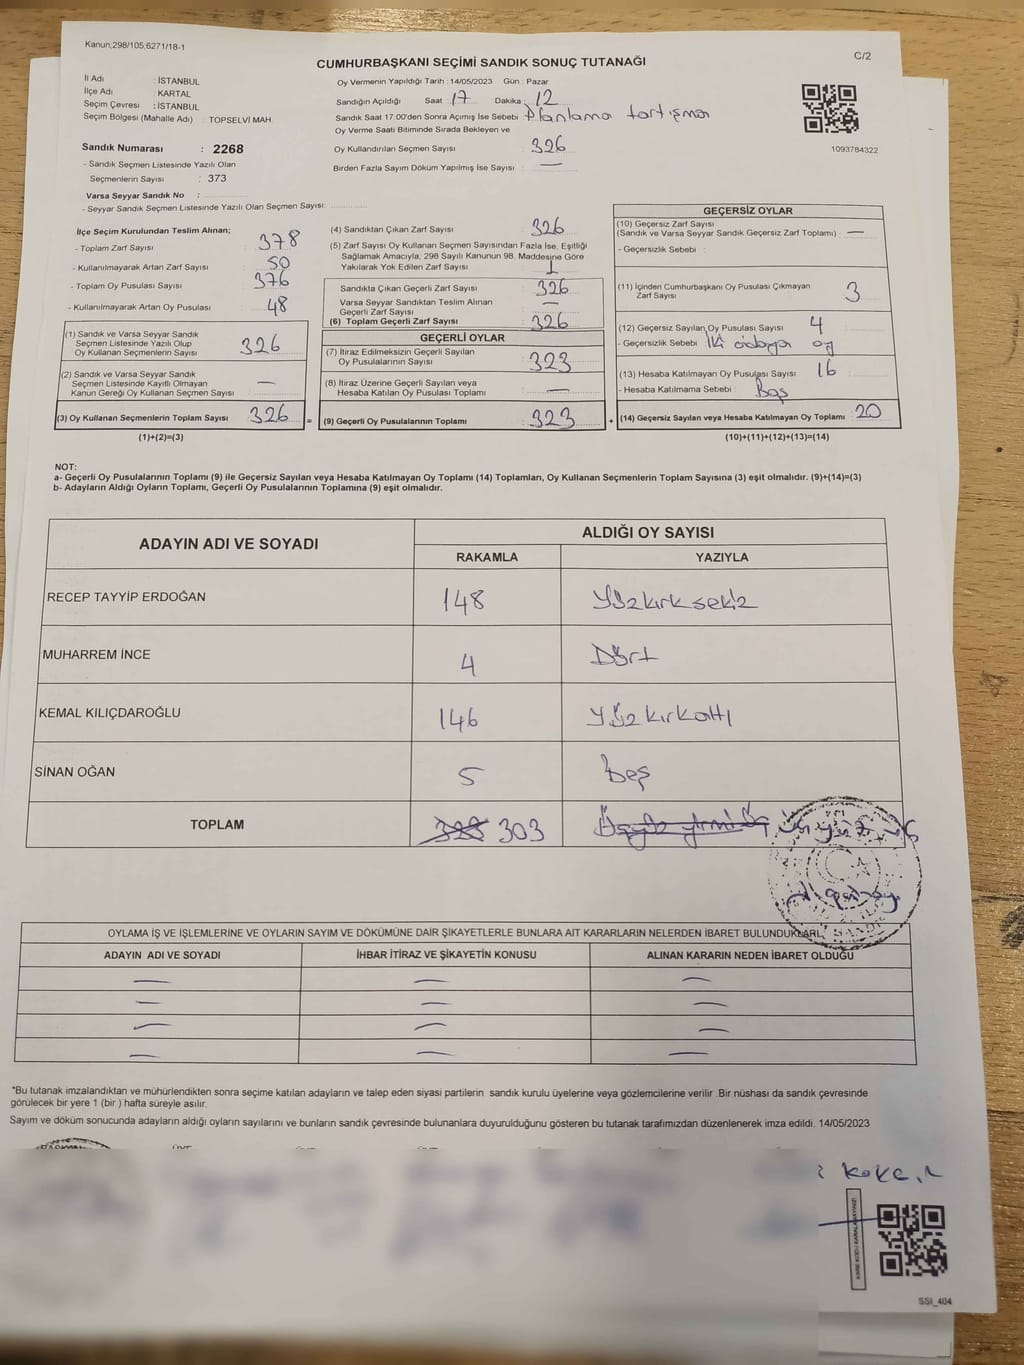 Kanun;298/105;6271/18-1
C/2
CUMHURBAŞKANI SEÇİMİ SANDIK SONUÇ TUTANAĞI
İl Adı : İSTANBUL
İlçe Adı : KARTAL
Seçim Çevresi : İSTANBUL
Seçim Bölgesi (Mahalle Adı) : TOPSELVİ MAH.
Sandık Numarası : 2268
- Sandık Seçmen Listesinde Yazılı Olan
Seçmenlerin Sayısı : 373
Varsa Seyyar Sandık No :
- Seyyar Sandık Seçmen Listesinde Yazılı Olan Seçmen Sayısı:
Oy Vermenin Yapıldığı Tarih : 14/05/2023 Gün : Pazar
Sandığın Açıldığı Saat : 17 Dakika : 12
Sandık Saat 17.00'den Sonra Açımış İse Sebebi : Planlama tartışma
Oy Verme Saati Bitiminde Sırada Bekleyen ve
Oy Kullandırılan Seçmen Sayısı : 326
Birden Fazla Sayım Döküm Yapılmış İse Sayısı : —
1093784322
İlçe Seçim Kurulundan Teslim Alınan;
- Toplam Zarf Sayısı : 378
- Kullanılmayarak Artan Zarf Sayısı : 50
- Toplam Oy Pusulası Sayısı : 376
- Kullanılmayarak Artan Oy Pusulası : 48
(1) Sandık ve Varsa Seyyar Sandık
Seçmen Listesinde Yazılı Olup
Oy Kullanan Seçmenlerin Sayısı : 326
(2) Sandık ve Varsa Seyyar Sandık
Seçmen Listesinde Kayıtlı Olmayan
Kanun Gereği Oy Kullanan Seçmen Sayısı : —
(3) Oy Kullanan Seçmenlerin Toplam Sayısı : 326 =
(1)+(2)=(3)
(4) Sandıktan Çıkan Zarf Sayısı : 326
(5) Zarf Sayısı Oy Kullanan Seçmen Sayısından Fazla İse, Eşitliği
Sağlamak Amacıyla; 298 Sayılı Kanunun 98. Maddesine Göre
Yakılarak Yok Edilen Zarf Sayısı :
Sandıkta Çıkan Geçerli Zarf Sayısı : 326
Varsa Seyyar Sandıktan Teslim Alınan
Geçerli Zarf Sayısı : —
(6) Toplam Geçerli Zarf Sayısı : 326
GEÇERLİ OYLAR
(7) İtiraz Edilmeksizin Geçerli Sayılan
Oy Pusulalarının Sayısı : 323
(8) İtiraz Üzerine Geçerli Sayılan veya
Hesaba Katılan Oy Pusulası Toplamı : —
(9) Geçerli Oy Pusulalarının Toplamı : 323 +
GEÇERSİZ OYLAR
(10) Geçersiz Zarf Sayısı
(Sandık ve Varsa Seyyar Sandık Geçersiz Zarf Toplamı) : —
- Geçersizlik Sebebi :
(11) İçinden Cumhurbaşkanı Oy Pusulası Çıkmayan
Zarf Sayısı : 3
(12) Geçersiz Sayılan Oy Pusulası Sayısı : 4
- Geçersizlik Sebebi : İki adaya oy
(13) Hesaba Katılmayan Oy Pusulası Sayısı : 16
- Hesaba Katılmama Sebebi : Boş
(14) Geçersiz Sayılan veya Hesaba Katılmayan Oy Toplamı : 20
(10)+(11)+(12)+(13)=(14)
NOT:
a- Geçerli Oy Pusulalarının Toplamı (9) ile Geçersiz Sayılan veya Hesaba Katılmayan Oy Toplamı (14) Toplamları, Oy Kullanan Seçmenlerin Toplam Sayısına (3) eşit olmalıdır. (9)+(14)=(3)
b- Adayların Aldığı Oyların Toplamı, Geçerli Oy Pusulalarının Toplamına (9) eşit olmalıdır.
ADAYIN ADI VE SOYADI ALDIĞI OY SAYISI
RAKAMLA YAZIYLA
RECEP TAYYİP ERDOĞAN 148 Yüzkırksekiz
MUHARREM İNCE 4 Dört
KEMAL KILIÇDAROĞLU 146 Yüzkırkaltı
SİNAN OĞAN 5 Beş
TOPLAM 323 303 Üçyüz yirmi üç üçyüz üç
OYLAMA İŞ VE İŞLEMLERİNE VE OYLARIN SAYIM VE DÖKÜMÜNE DAİR ŞİKAYETLERLE BUNLARA AİT KARARLARIN NELERDEN İBARET BULUNDUKLARI,
ADAYIN ADI VE SOYADI İHBAR İTİRAZ VE ŞİKAYETİN KONUSU ALINAN KARARIN NEDEN İBARET OLDUĞU
— — —
— — —
— — —
— — —
"Bu tutanak imzalandıktan ve mühürlendikten sonra seçime katılan adayların ve talep eden siyasi partilerin sandık kurulu üyelerine veya gözlemcilerine verilir .Bir nüshası da sandık çevresinde
görülecek bir yere 1 (bir ) hafta süreyle asılır.
Sayım ve döküm sonucunda adayların aldığı oyların sayılarını ve bunların sandık çevresinde bulunanlara duyurulduğunu gösteren bu tutanak tarafımızdan düzenlenerek imza edildi. 14/05/2023
SSI_404